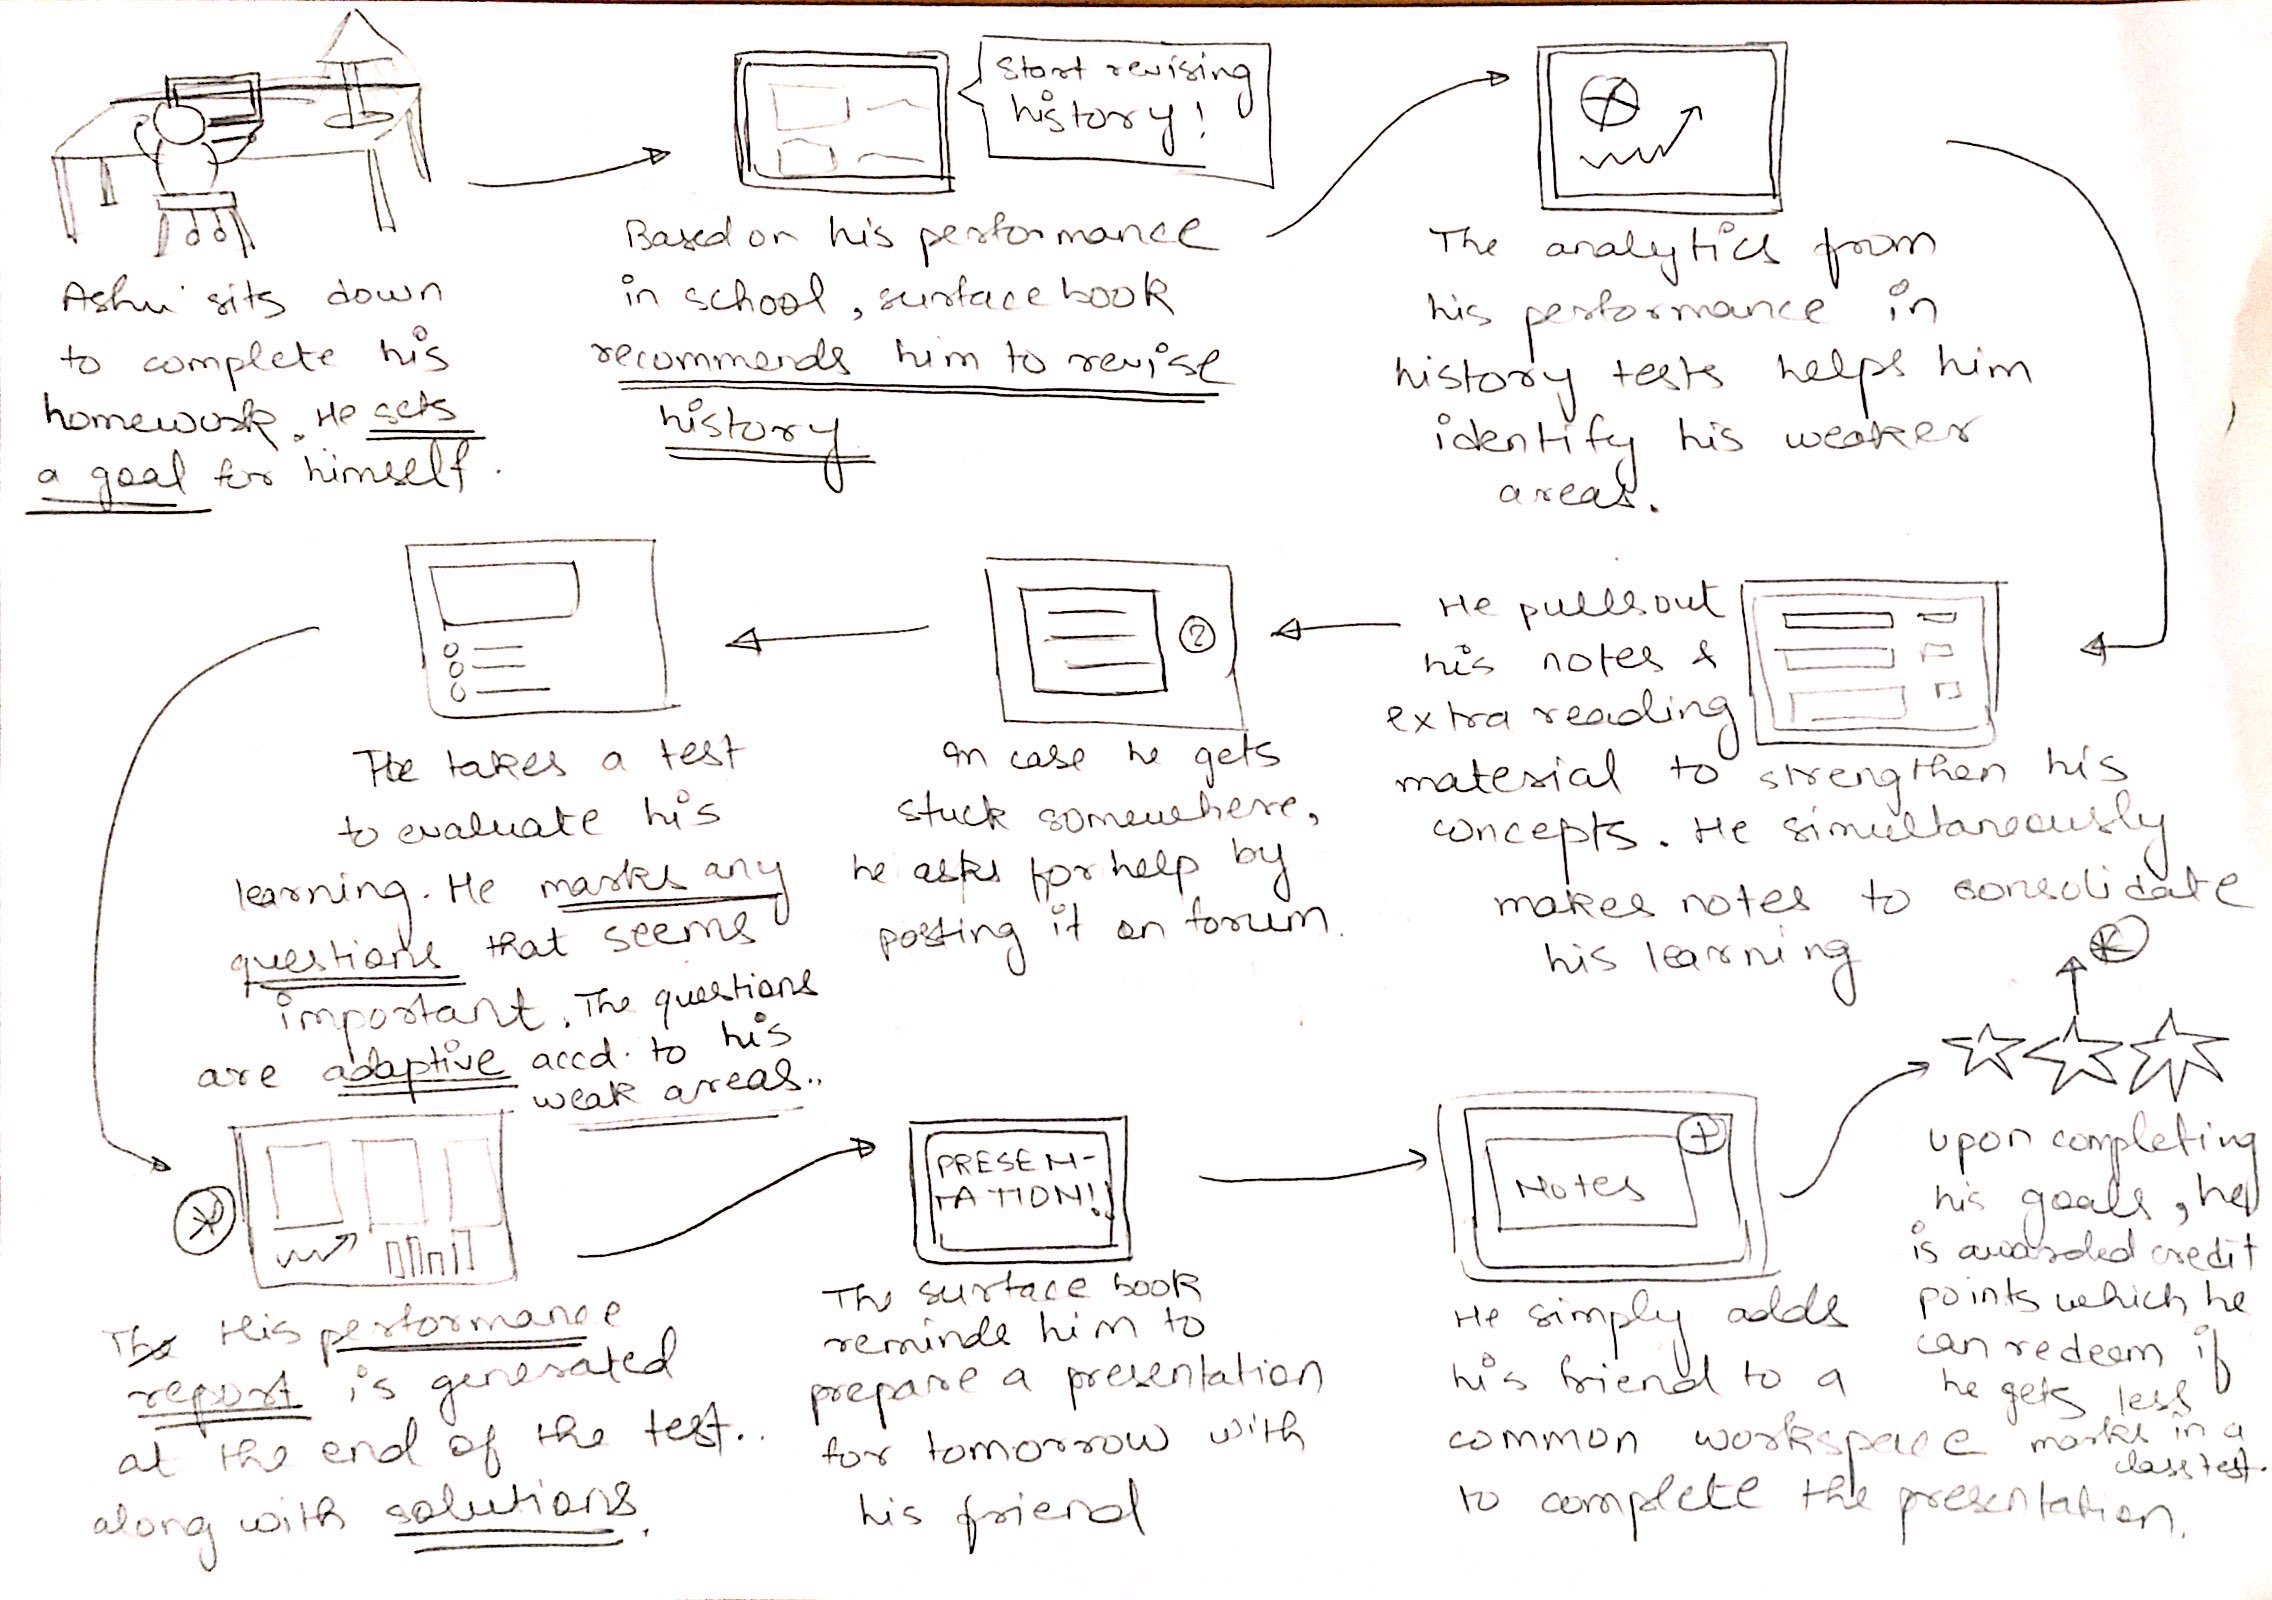 Ashu sits down
to complete his
homework. He sets
a goal for himself.
Start revising
history!
Based on his performance
in school, surface book
recommends him to revise
history
The analytics from
his performance in
history tests helps him
identify his weaker
areas.
He pulls out
his notes &
extra reading
material to strengthen his
concepts. He simultaneously
makes notes to consolidate
his learning
?
In case he gets
stuck somewhere,
he asks for help by
posting it on forum.
He takes a test
to evaluate his
learning. He marks any
questions that seems
important. The questions
are adaptive accd. to his
weak areas..
His performance
report is generated
at the end of the test..
along with solutions.
PRESEN-
TATION!!
The surface book
reminds him to
prepare a presentation
for tomorrow with
his friend
+
Notes
He simply adds
his friend to a
common workspace
to complete the presentation.
upon completing
his goals, he
is awarded credit
points which he
can redeem if
he gets less
marks in a
class test.